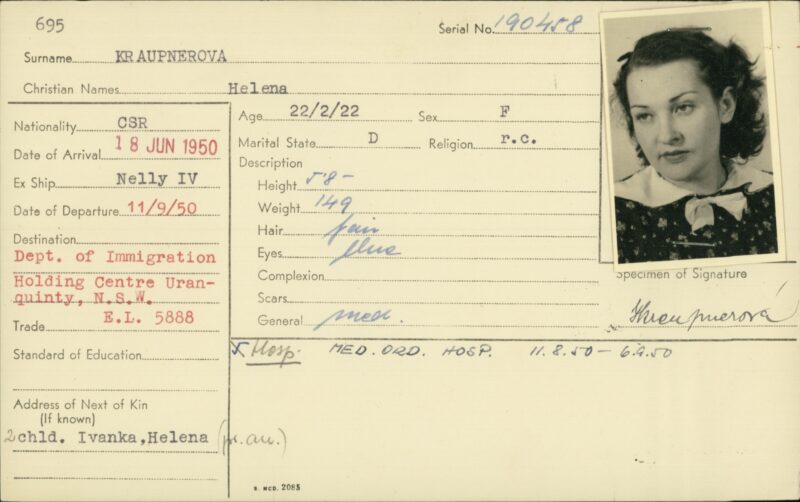 695
Serial No. 190458
Surname KRAUPNEROVA
Christian Names Helena
Nationality CSR
Date of Arrival 18 JUN 1950
Ex Ship Nelly IV
Date of Departure 11/9/50
Destination
Dept. of Immigration
Holding Centre Uran-
quinty, N.S.W.
E.L. 5888
Trade
Standard of Education
Address of Next of Kin
(If known)
2chld. Ivanka,Helena
Age 22/2/22 Sex F
Marital State D Religion r.c.
Description
Height 5'8-
Weight 149
Hair fair
Eyes blue
Complexion
Scars
General med.
Specimen of Signature
Hkraupnerová
Hosp. MED. ORD. HOSP. 11.8.50 - 6.9.50
S. MCD. 2085